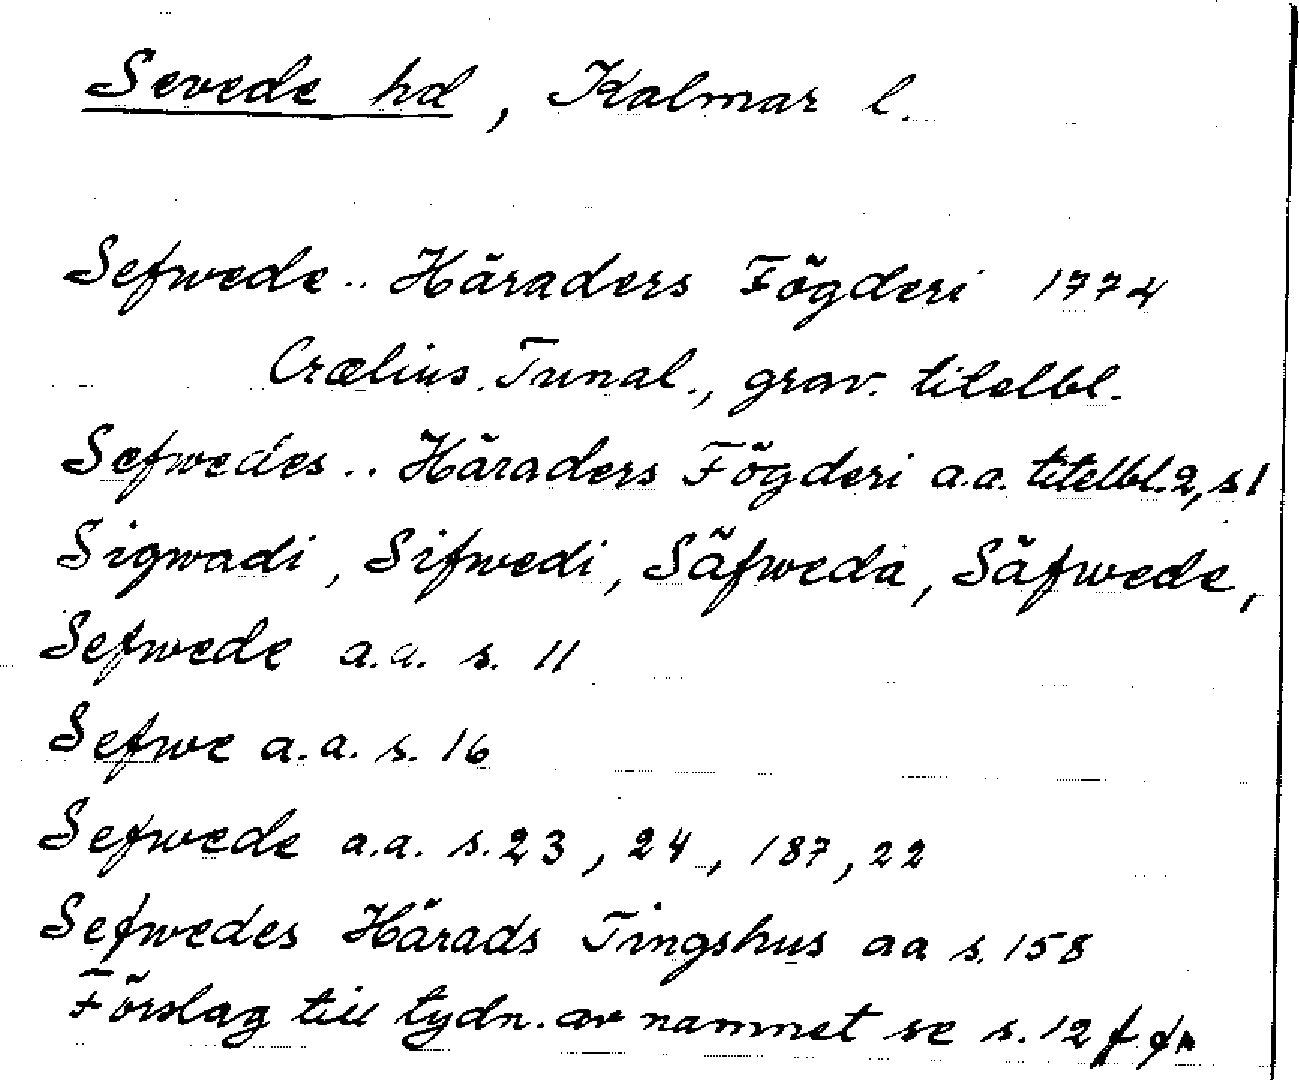 Sevede hd, Kalmar l.
Sefwede.. Häraders Fögderi 1774
Crælius. Tunal., grav. titelbl.
Sefwedes.. Häraders Fögderi a.a. titelbl. 2, s 1
Sigwadi, Sifwedi, Säfweda, Säfwede,
Sefwede a.a. s. 11
Sefwe a.a. s. 16
Sefwede a.a. s. 23, 24, 187, 22
Sefwedes Härads Tingshus aa s. 158
Förslag till tydn. av namnet se s. 12 f.